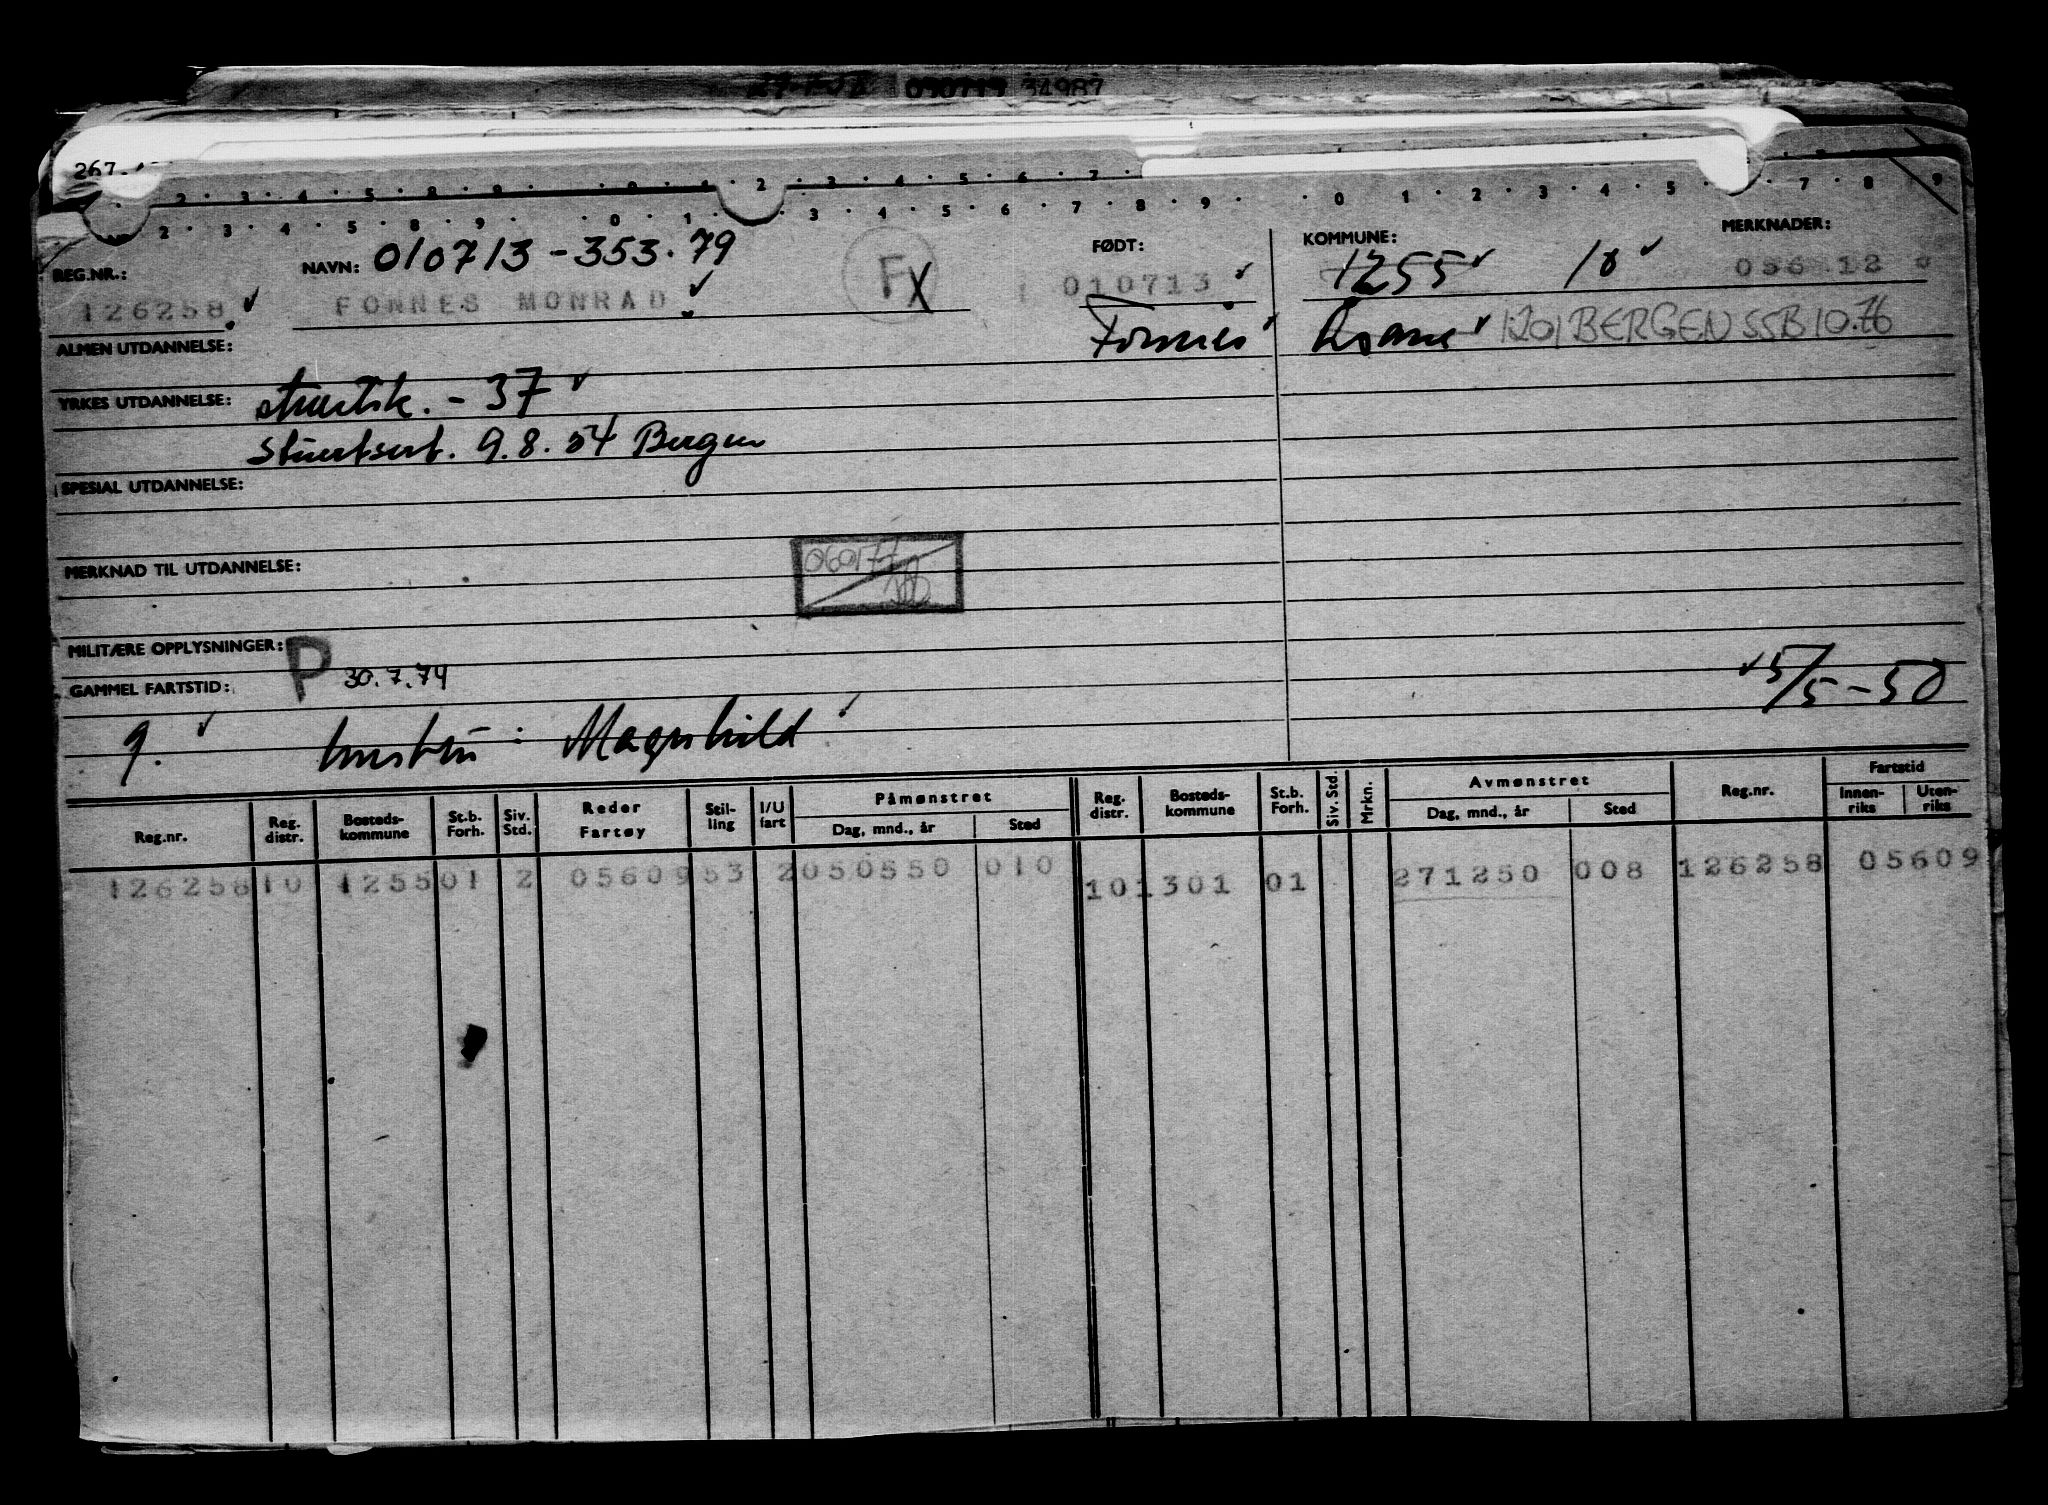 090719 34987
267.
2 · 3 · 4 · 5 · 8 · 9 · 0 · 1 · 2 · 3 · 4 · 5 · 6 · 7 ·
2 · 3 · 4 · 5 · 8 · 9 · 0 · 1 · 3 · 4 · 5 · 6 · 7 · 8 · 9 · 0 · 1 · 2 · 3 · 4 · 5 · 7 · 8 · 9
REG.NR.: NAVN: 010713-353.79 FX FØDT: KOMMUNE: MERKNADER:
126258 FONNES MONRAD 010713 1255 10 056 12
Fonnes Åsane 1201 BERGEN SSB 10.76
ALMEN UTDANNELSE:
YRKES UTDANNELSE: stuertsk. - 37
Stuertsert. 9.8.54 Bergen
SPESIAL UTDANNELSE:
060177
MERKNAD TIL UTDANNELSE:
MILITÆRE OPPLYSNINGER: P 30.7.74
GAMMEL FARTSTID: 5/5-50
g. hustru: Magnhild
Reg.nr. Reg. distr. Bosteds-kommune St.b. Forh. Siv. Std. Reder Fartøy Stil-ling I/U fart Påmønstret Dag, mnd., år Sted Reg. distr. Bosteds-kommune St.b. Forh. Siv. Std. Mrkn. Avmønstret Dag, mnd., år Sted Reg.nr. Fartstid Innen-riks Uten-riks
126258 10 1255 01 2 05609 53 2 050550 010 10 1301 01 271250 008 126258 05609